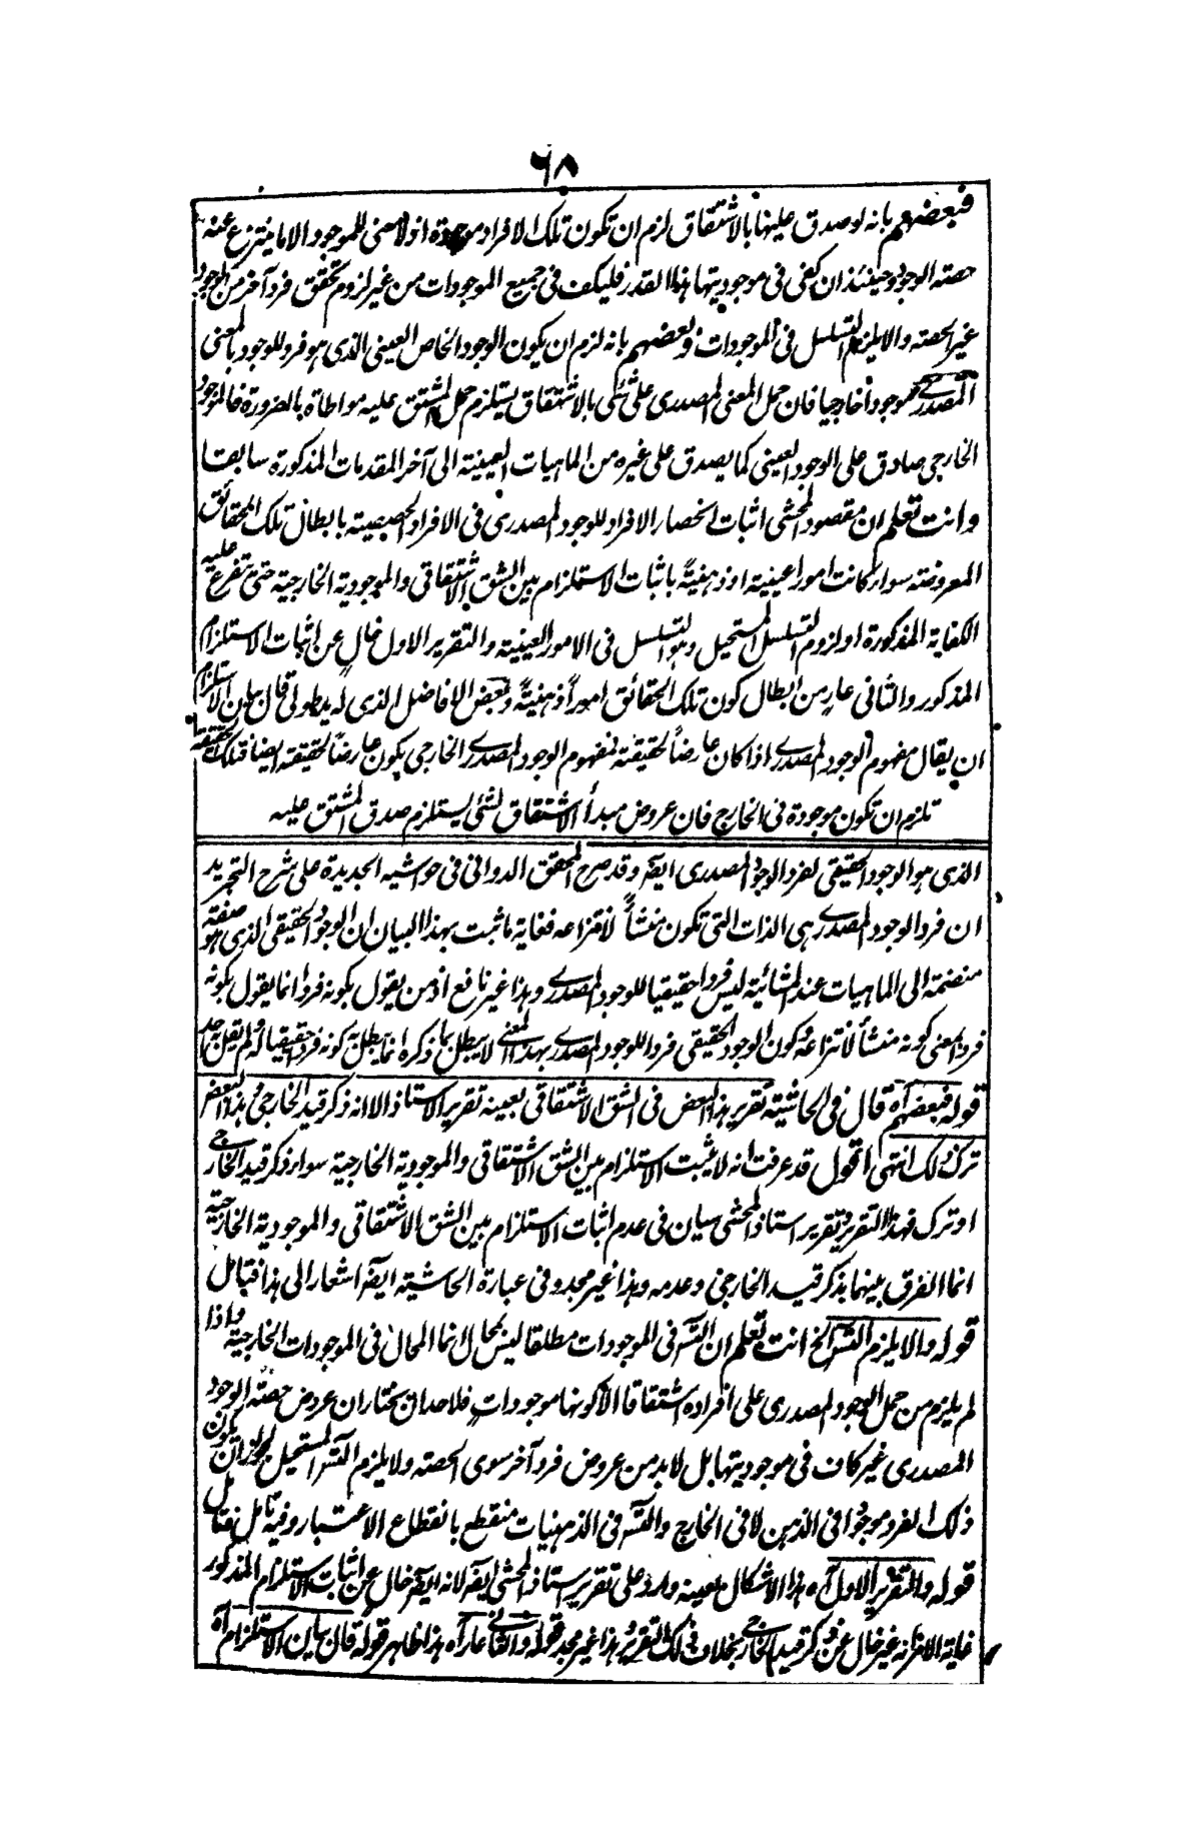 ٦٨
فبعضهم بانه لو صدق عليها بالاشتقاق لزم ان تكون تلك الافراد موجودة اذ لا معنى للموجود الا ما ينتزع عنه
حصته الوجود وحينئذ ان كفى فى موجوديتها هذا القدر فليكف فى جميع الموجودات من غير لزوم تحقق فرد آخر من الوجود
غير الحصته والا يلزم التسلسل فى الموجودات وبعضهم بانه لزم ان يكون الوجود الخاص العينى الذى هو فرد للوجود بالمعنى
المصدرى موجودا خارجيا فان حمل المعنى المصدرى على شئى بالاشتقاق يستلزم حمل المشتق عليه مواطاة بالضرورة فالموجود
الخارجى صادق على الوجود العينى كما يصدق على غيره من الماهيات العينية الى آخر المقدمات المذكورة سابقا
وانت تعلم ان مقصود المحشى اثبات انحصار الافراد للوجود المصدرى فى الافراد الحصصية بابطال تلك الحقائق
المعروضة سواء كانت امورا عينية او ذهنيةً باثبات الاستلزام بين الشق الاشتقاقى والموجودية الخارجية حتى يتفرع عليه
الكفاية المذكورة او لزوم التسلسل المستحيل وهو التسلسل فى الامور العينية والتقرير الاول خالٍ عن اثبات الاستلزام
المذكور والثانى عارٍ من ابطال كون تلك الحقائق اموراً ذهنيةً وبعض الافاضل الذى له يد طولى قال بيان الاستلزام
ان يقال مفهوم الوجود المصدرى اذا كان عارضاً لحقيقته فمفهوم الوجود المصدرى الخارجى يكون عارضاً لحقيقته ايضا فتلك الحقيقة
تلزم ان تكون موجودة فى الخارج فان عروض مبدأ الاشتقاق لشئى يستلزم صدق المشتق عليه
الذى هو الوجود الحقيقى لفرد الوجود المصدرى ايضا وقد صرح المحقق الدوانى فى حواشيه الجديدة على شرح التجريد
ان فرد الوجود المصدرى هى الذات التى تكون منشأً لانتزاعه فغاية ما ثبت بهذا البيان ان الوجود الحقيقى الذى هو صفة
منضمة الى الماهيات عند المشائية ليس فردا حقيقيا للوجود المصدرى وهذا غير نافع اذ من يقول بكونه فردا انما يقول بكونه
فردا بمعنى كونه منشأ لانتزاعه وكون الوجود الحقيقى فردا للوجود المصدرى بهذا المعنى لا يبطل بما ذكره انما يبطل به كونه فردا حقيقيا له ولم يقل به احد
قوله فبعضهم آه قال فى الحاشية تقرير هذا البعض فى الشق الاشتقاقى بعينه تقرير الاستاذ الا انه ذكر قيد الخارجى وهذا البعض
ترك ذلك انتهى اقول قد عرفت انه لا يثبت الاستلزام بين الشق الاشتقاقى والموجودية الخارجية سواء ذكر قيد الخارجى
او ترك فهذا التقرير وتقرير استاذ المحشى سيان فى عدم اثبات الاستلزام بين الشق الاشتقاقى والموجودية الخارجية
انما الفرق بينهما بذكر قيد الخارجى وعدمه وهذا غير مجد وفى عبارة الحاشية ايضا اشعار الى هذا فتامل
قوله والا يلزم التسـ الخ انت تعلم ان التسـ فى الموجودات مطلقا ليس بمحال انما المحال فى الموجودات الخارجية واذا
لم يلزم من حمل الوجود المصدرى على افراده اشتقاقا الا كونها موجودات فلاحد ان يختار ان عروض حصته الوجود
المصدرى غير كاف فى موجوديتها بل لا بد من عروض فرد آخر سوى الحصته ولا يلزم التسـ المستحيل لجواز ان يكون
ذلك الفرد موجودا فى الذهن لا فى الخارج والتسـ فى الذهنيات منقطع بانقطاع الاعتبار وفيه تامل فتامل
قوله والتقرير الاول آه هذا الاشكال بعينه وارد على تقرير استاذ المحشى ايضا لانه ايضا خال عن اثبات الاستلزام المذكور
غاية الامر انه غير خال عن ذكر قيد الخارجى بخلاف ذلك التقرير وهذا غير مجد قوله والثانى عار آه هذا ظاهر قوله قال بيان الاستلزام آه